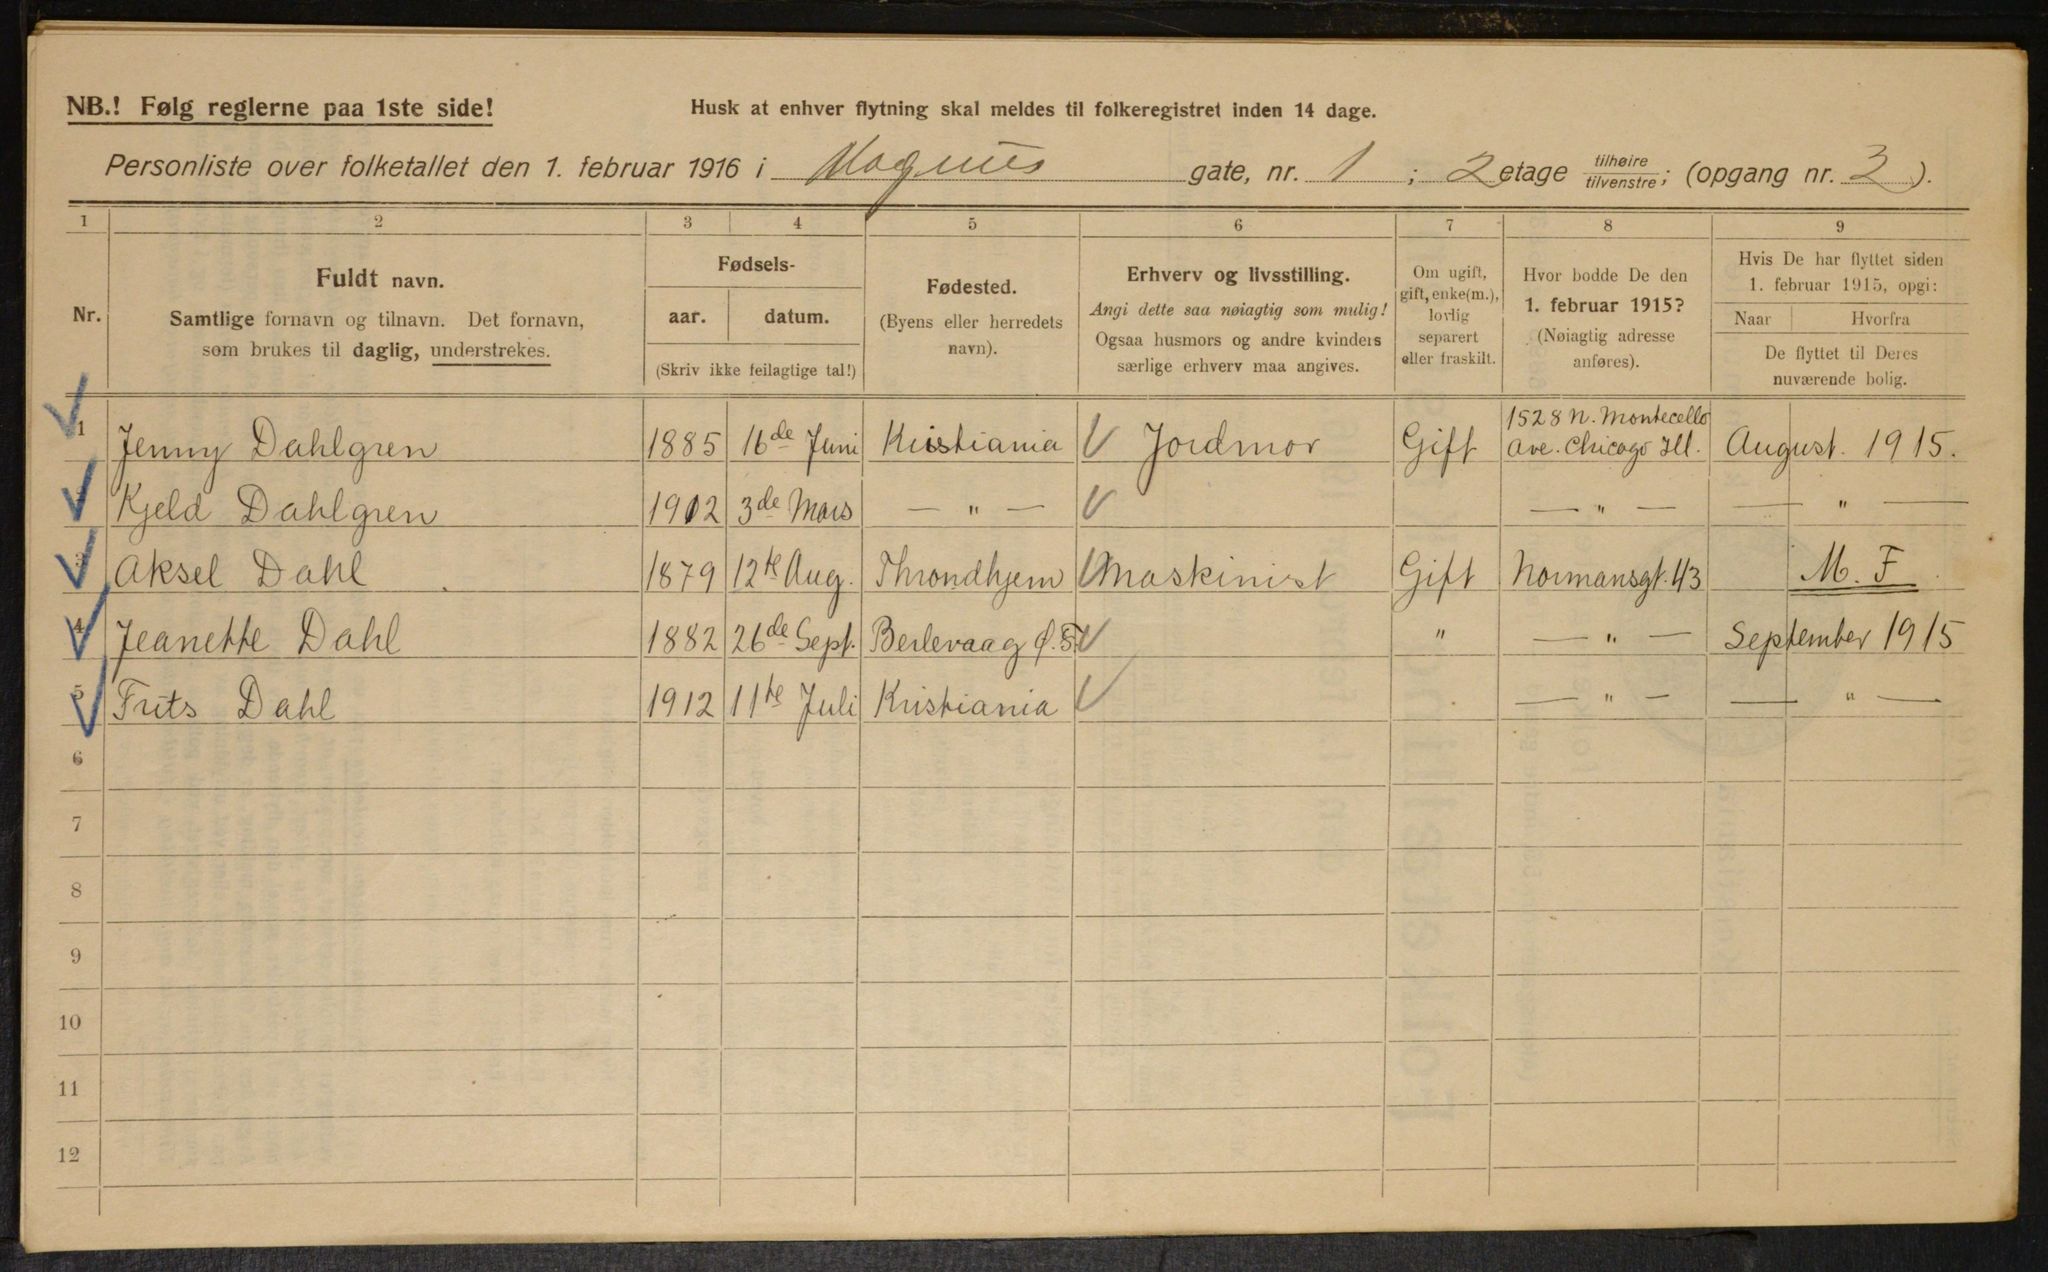 NB.! Følg reglerne paa 1ste side!
Husk at enhver flytning skal meldes til folkeregistret inden 14 dage.
Personliste over folketallet den 1. februar 1916 i Magnus gate, nr. 1 ; 2 etage tilhøire / tilvenstre ; (opgang nr. 3 ).
1 2 3 4 5 6 7 8 9
Nr.
Fuldt navn.
Samtlige fornavn og tilnavn. Det fornavn,
som brukes til daglig, understrekes.
Fødsels-
aar. datum.
(Skriv ikke feilagtige tal!)
Fødested.
(Byens eller herredets
navn).
Erhverv og livsstilling.
Angi dette saa nøiagtig som mulig!
Ogsaa husmors og andre kvinders
særlige erhverv maa angives.
Om ugift,
gift, enke(m.),
lovlig
separert
eller fraskilt.
Hvor bodde De den
1. februar 1915?
(Nøiagtig adresse
anføres).
Hvis De har flyttet siden
1. februar 1915, opgi:
Naar Hvorfra
De flyttet til Deres
nuværende bolig.
1 Jenny Dahlgren 1885 16de Juni Kristiania Jordmor Gift 1528 N. Montecello Ave. Chicago Ill. August. 1915.
Kjeld Dahlgren 1912 3de Mars — " — — " — — " —
3 Aksel Dahl 1879 12te Aug. Throndhjem Maskinist Gift Normansgt. 43 M. F.
4 Jeanette Dahl 1882 26de Sept. Berlevaag Ø. F. " — " — September 1915
5 Frits Dahl 1912 11te Juli Kristiania — " — — " —
6
7
8
9
10
11
12